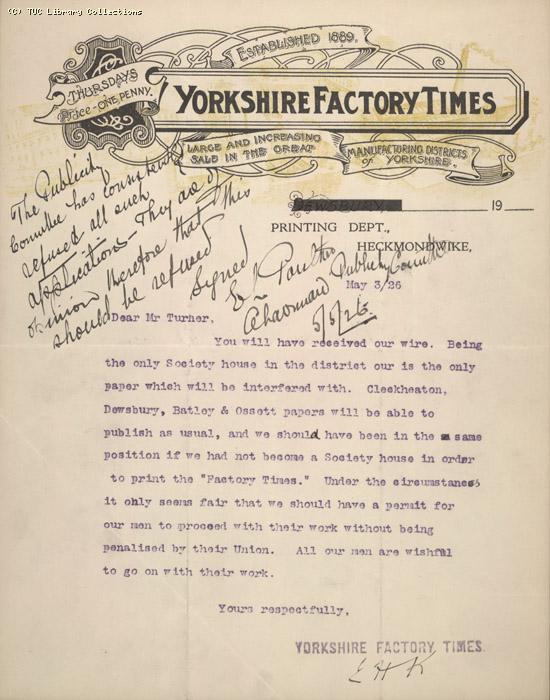 (C) TUC Library Collections
ESTABLISHED 1889.
THURSDAYS
Price - ONE PENNY.
YORKSHIRE FACTORY TIMES
LARGE AND INCREASING
SALE IN THE GREAT
MANUFACTURING DISTRICTS
OF YORKSHIRE.
DEWSBURY
19
PRINTING DEPT.,
HECKMONDWIKE,
The Publicity
Committee has consistently
refused all such
applications - They are of
opinion therefore that this
should be refused
Signed
E L Poulton
Chairman Publicity Committee
5/5/26.
May 3/26
Dear Mr Turner,
You will have received our wire. Being
the only Society house in the district our is the only
paper which will be interfered with. Cleckheaton,
Dewsbury, Batley & Ossett papers will be able to
publish as usual, and we should have been in the same
position if we had not become a Society house in order
to print the "Factory Times." Under the circumstances
it only seems fair that we should have a permit for
our men to proceed with their work without being
penalised by their Union. All our men are wishful
to go on with their work.
Yours respectfully,
YORKSHIRE FACTORY TIMES.
E H K